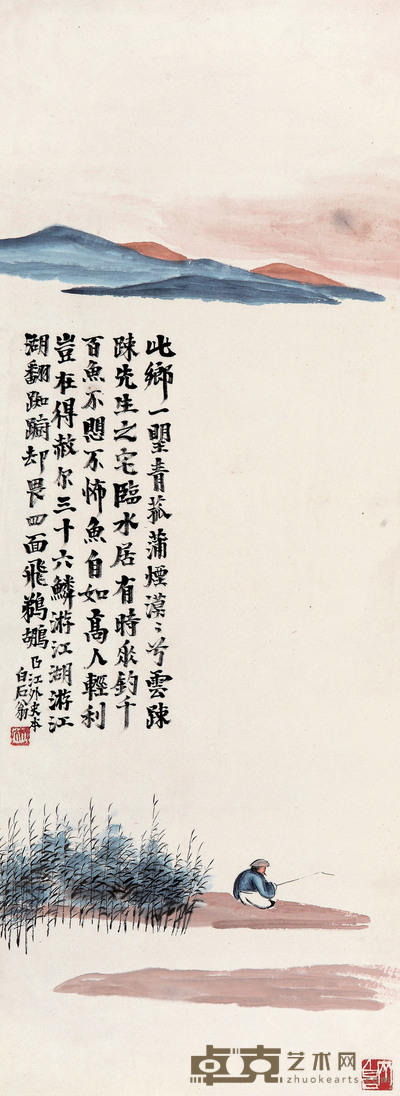 此鄉一望青菰蒲煙漠〻兮雲疎
疎先生之宅臨水居有時垂釣千
百魚不不怖魚自如高人輕利
豈在得赦尔三十六鱗游江湖游江
湖翻踟躕却畏四面飛鵜鶘
曲江外史本
白石翁
卓克艺术网
zhuokearts.com